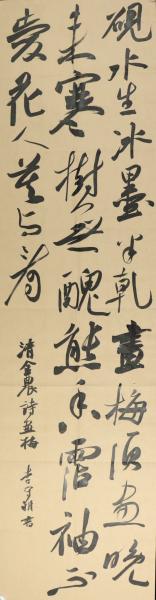 硯水生冰墨半乾畫梅須畫晚
來寒樹無醜態香霑袖不
愛花人莫與看
清金農詩畫梅